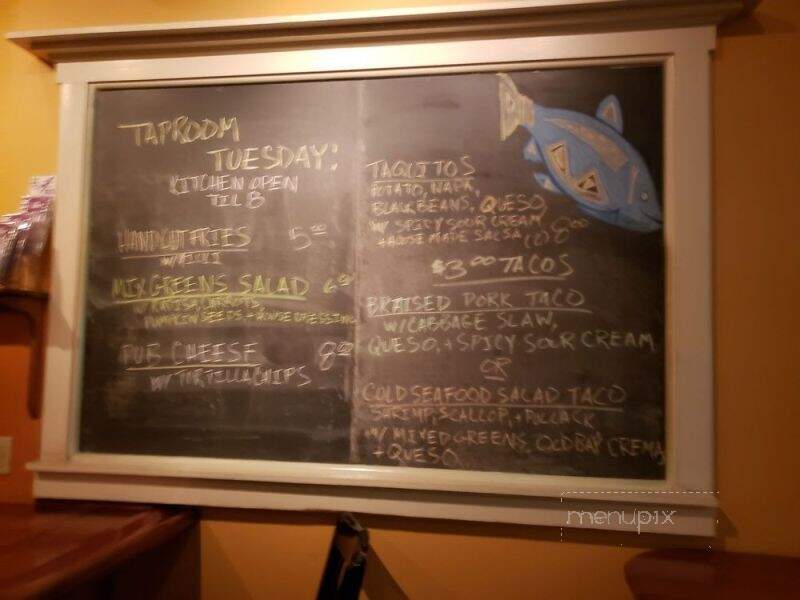 TAPROOM
TUESDAY!
KITCHEN OPEN
TIL 8
HANDCUT FRIES 5.00
W/
MIX GREENS SALAD 6.00
W/ RADISH, CARROTS,
PUMPKIN SEEDS + HOUSE DRESSING
PUB CHEESE 8.00
W/ TORTILLA CHIPS
TAQUITOS
POTATO, NAPA,
BLACK BEANS, QUESO
W/ SPICY SOUR CREAM
+ HOUSE MADE SALSA 8.00
$3.00 TACOS
BRAISED PORK TACO
W/ CABBAGE SLAW,
QUESO, + SPICY SOUR CREAM
OR
COLD SEAFOOD SALAD TACO
SHRIMP, SCALLOP, + POLLACK
W/ MIXED GREENS, OLD BAY CREMA,
+ QUESO
menupix